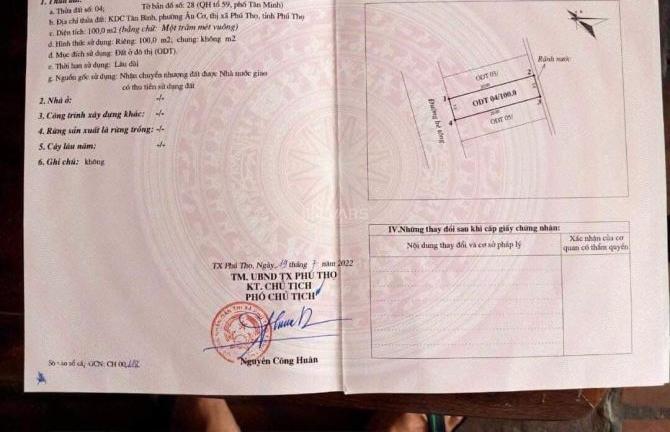 a. Thửa đất số: 04; Tờ bản đồ số: 28 (QH tờ 59, phố Tân Minh)
b. Địa chỉ thửa đất: KDC Tân Bình, phường Âu Cơ, thị xã Phú Thọ, tỉnh Phú Thọ
c. Diện tích: 100,0 m2 (bằng chữ: Một trăm mét vuông)
d. Hình thức sử dụng: Riêng: 100,0 m2; chung: không m2
đ. Mục đích sử dụng: Đất ở đô thị (ODT).
e. Thời hạn sử dụng: Lâu dài
g. Nguồn gốc sử dụng: Nhận chuyển nhượng đất được Nhà nước giao
có thu tiền sử dụng đất
2. Nhà ở: -/-
3. Công trình xây dựng khác: -/-
4. Rừng sản xuất là rừng trồng: -/-
5. Cây lâu năm: -/-
6. Ghi chú: không
TX Phú Thọ, Ngày 19 tháng 7 năm 2022
TM. UBND TX PHÚ THỌ
KT. CHỦ TỊCH
PHÓ CHỦ TỊCH
Nguyễn Công Huân
Số vào sổ cấp GCN: CH 00
Rãnh nước
ODT 03/
1
2
ODT 04/100.0
3
4
ODT 05/
Đường bê tông
IV. Những thay đổi sau khi cấp giấy chứng nhận:
Nội dung thay đổi và cơ sở pháp lý
Xác nhận của cơ
quan có thẩm quyền